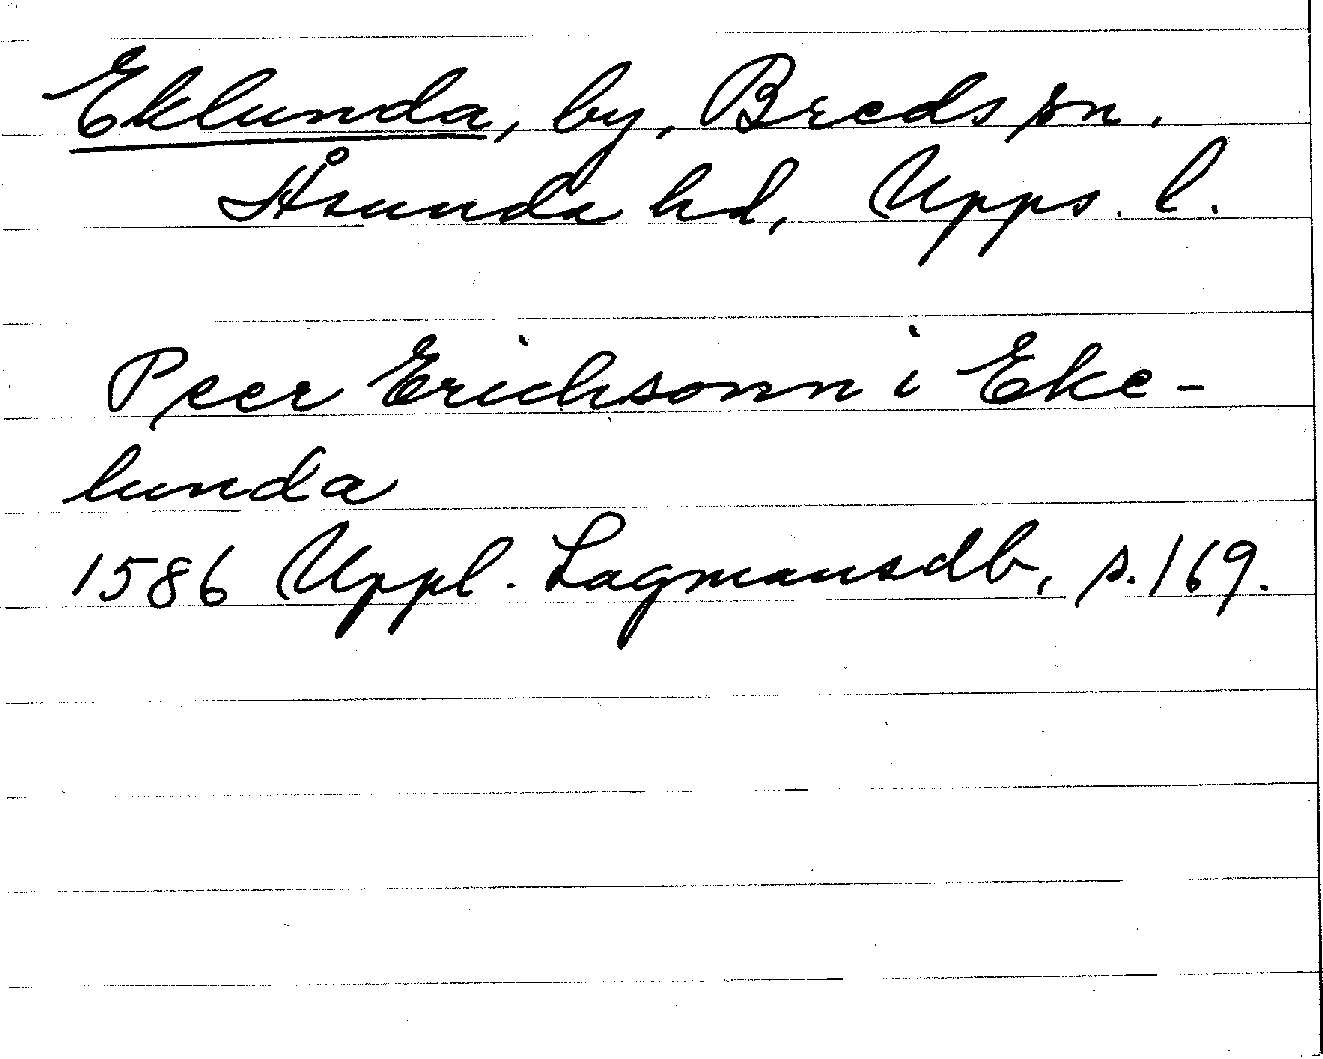 Eklunda, by, Breds sn.
Åsunda hd, Upps. l.
Peer Erichsonn i Eke-
lunda
1586 Uppl. Lagmansdb, s. 169.